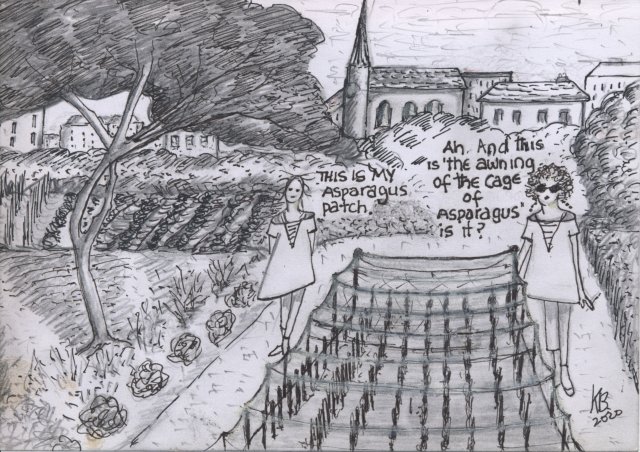 THIS IS MY
Asparagus
patch.
Ah. And this
is "the awning
of the cage
of
Asparagus"
is it?
KB
2020